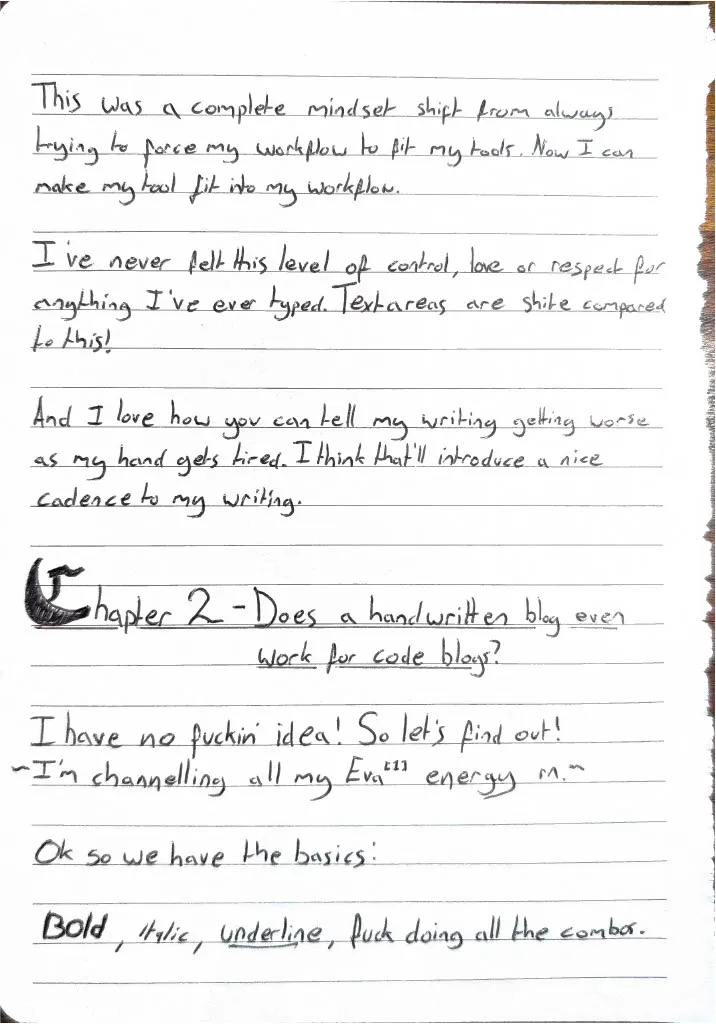 This was a complete mindset shift from always
trying to force my workflow to fit my tools. Now I can
make my tool fit into my workflow.
I've never felt this level of control, love or respect for
anything I've ever typed. Textareas are shite compared
to this!
And I love how you can tell my writing getting worse
as my hand gets tired. I think that'll introduce a nice
cadence to my writing.
Chapter 2 - Does a handwritten blog even
work for code blogs?
I have no fuckin' idea! So let's find out!
~I'm channelling all my Eva[1] energy rn.~
Ok so we have the basics:
Bold, italic, underline, fuck doing all the combos.